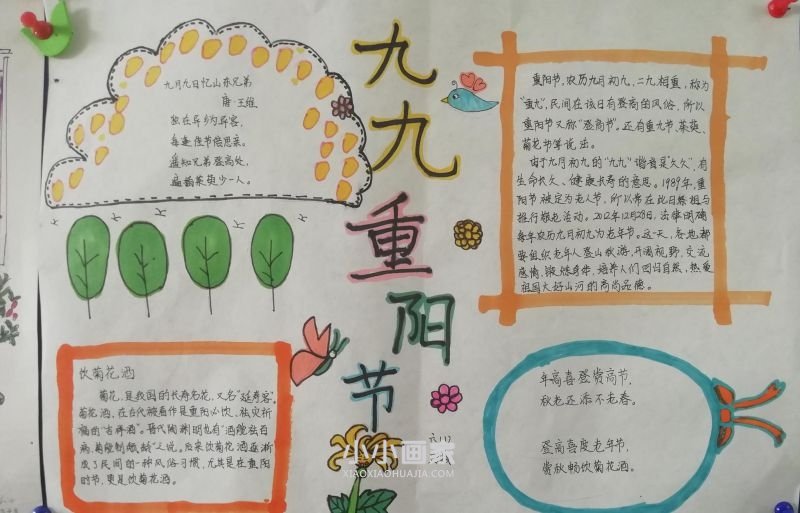 九九重阳节
九月九日忆山东兄弟
唐·王维
独在异乡为异客,
每逢佳节倍思亲。
遥知兄弟登高处,
遍插茱萸少一人。
重阳节,农历九月初九,二九相重,称为
"重九",民间在该日有登高的风俗,所以
重阳节又称"登高节"。还有重九节、茱萸、
菊花节等说法。
由于九月初九的"九九"谐音是"久久",有
生命长久、健康长寿的意思。1989年,重
阳节被定为老人节,所以常在此日祭祖与
推行敬老活动。2012年12月28日,法律明确
每年农历九月初九为老年节。这一天,各地都
要组织老年人登山秋游,开阔视野,交流
感情,锻炼身体,培养人们回归自然,热爱
祖国大好山河的高尚品德。
饮菊花酒
菊花,是我国的长寿名花,又名"延寿客"。
菊花酒,在古代被看作是重阳必饮、祛灾祈
福的"吉祥酒"。晋代陶渊明也有"酒能祛百
病,菊能制颓龄"之说。后来饮菊花酒逐渐
成了民间的一种风俗习惯,尤其是在重阳
时节,更是饮菊花酒。
年高喜登赏高节,
秋老还添不老春。
登高喜度老年节,
赏秋畅饮菊花酒。
小小画家
XIAOXIAOHUAJIA.COM